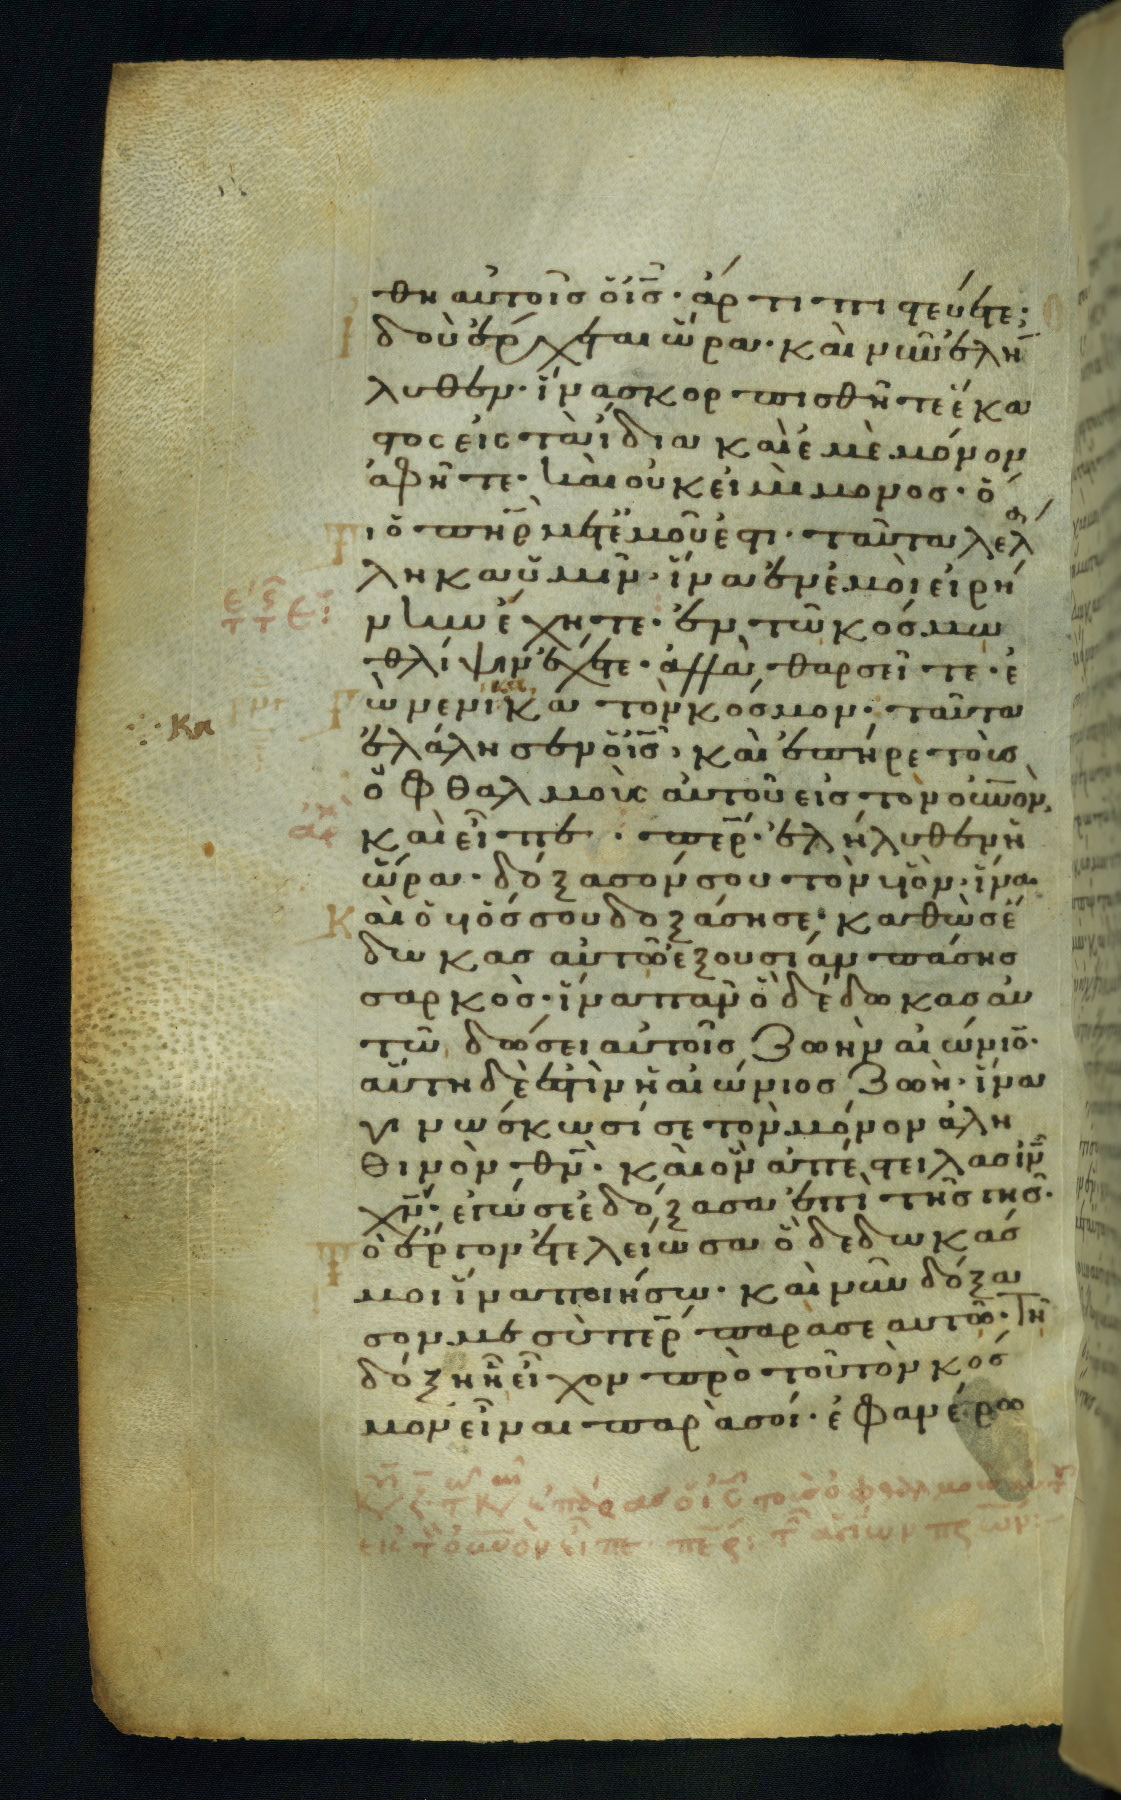 θη αὐτοῖσ ὁ ἰ̅σ̅· ἄρτι πιστεύετε;
δοὺ ἔρχεται ὥρα· καὶ νῦν ἐλή
λυθεν· ἵνα σκορπισθῆτε ἕκα
στος εἰς τὰ ἴδια καὶ ἐμὲ μόνον
ἀφῆτε· καὶ οὐκ εἰμὶ μόνοσ· ὅ
τι ὁ π̅η̅ρ̅ μετ ἐμοῦ ἐστι· ταῦτα λελά
ληκα ὑμῖν· ἵνα ἐν ἐμοὶ εἰρή
νην ἔχητε· ἐν τῶ κόσμω
θλίψιν ἔχετε· ἀλλὰ θαρσεῖτε· ἐ
γὼ νενίκηκα τὸν κόσμον· ταῦτα
ἐλάλησεν ὁ ἰ̅σ̅, καὶ ἐπῆρε τοὺσ
ὀφθαλμοὺς αὐτοῦ εἰσ τὸν ο̅υ̅ν̅ο̅ν̅,
καὶ εἶπε· π̅ε̅ρ̅· ἐλήλυθεν ἡ
ὥρα· δόξασόν σου τὸν υἱὸν· ἵνα
καὶ ὁ υἱόσ σου δοξάση σε· καθὼσ ἔ
δωκασ αὐτῶ ἐξουσίαν πάσησ
σαρκὸσ· ἵνα πᾶν ὃ δέδωκασ αυ
τῶ, δώσει αὐτοῖσ ζωὴν αἰώνιο̅·
αὕτη δὲ ἐστὶν ἡ αἰώνιοσ ζωὴ· ἵνα
γινώσκωσί σε τὸν μόνον ἀλη
θινὸν θ̅ν̅· καὶ ὃν ἀπέστειλασ ἰ̅ν̅
χ̅ν̅· ἐγώ σε ἐδόξασα ἐπὶ τῆσ γῆσ·
τὸ ἔργον ἐτελείωσα ὃ δέδωκάσ
μοι ἵνα ποιήσω· καὶ νῦν δόξα
σον με σὺ π̅ε̅ρ̅ παρὰ σεαυτῶ· τῆ
δόξη ἧ εἶχον πρὸ τοῦ τὸν κόσ
μον εἶναι παρὰ σοί· ἐφανέρω